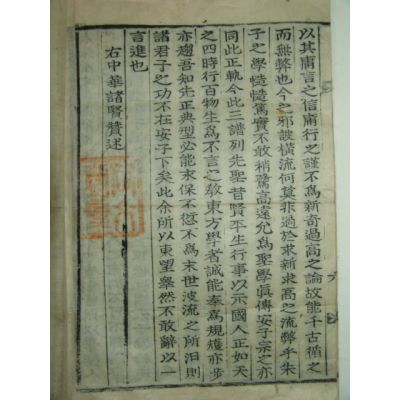 以其庸言之信庸行之謹不爲新奇過高之論故能千古循之
而無弊也今之邪說橫流何莫非過於求新求高之流弊乎朱
子之學慥慥篤實不敢稍騖高遠允爲聖學眞傳安子宗之亦
同此正軌今此三譜列先聖昔賢平生行事以示國人正如天
之四時行百物生爲不言之敎東方學者誠能奉爲規矱亦步
亦趨吾知先正典型必能末保不愆不爲末世波流之所汨則
諸君子之功不在安子下矣此余所以東望皋然不敢辭以一
言進也
右中華諸賢贊述